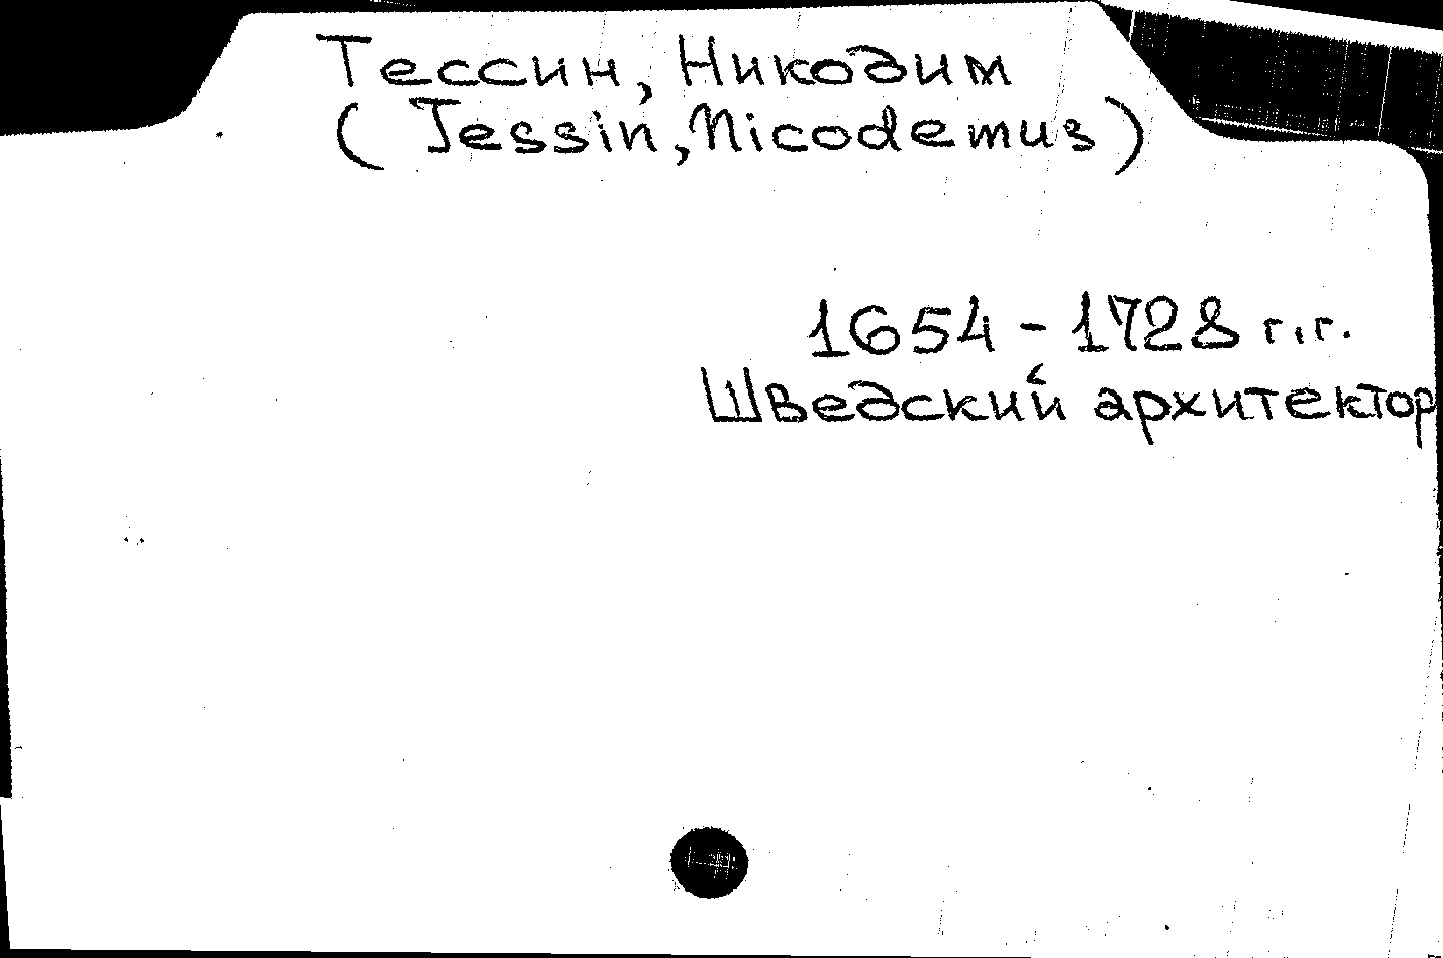 Тессин, Никодим
(Tessin, Nicodemus)
1654 - 1728 г.г.
Шведский архитектор